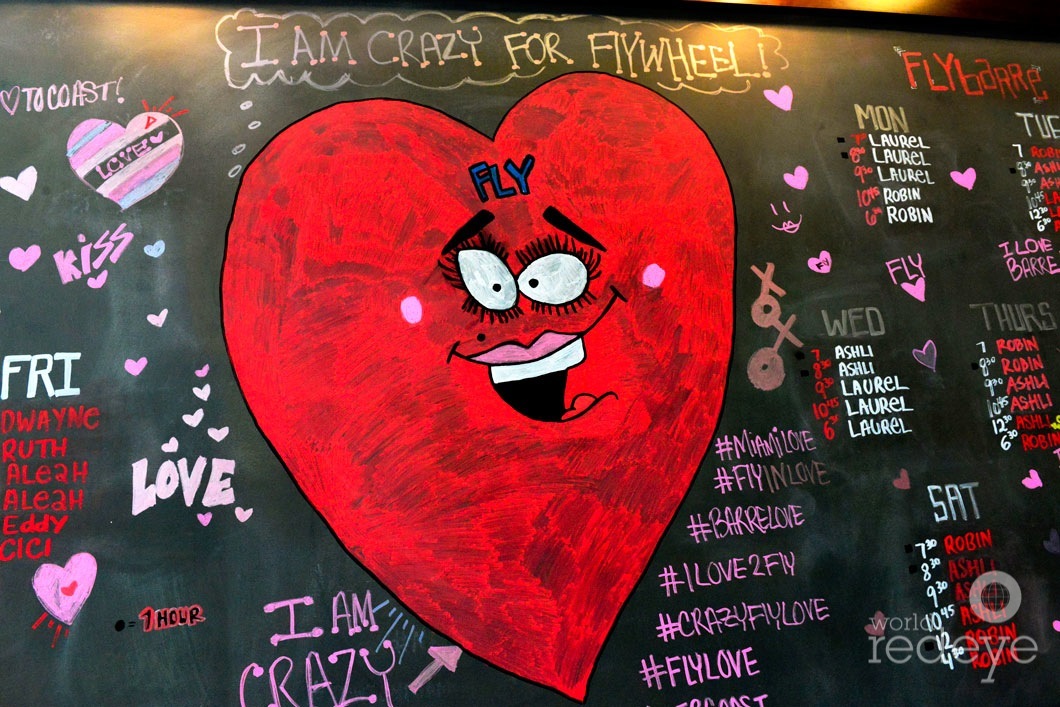 I AM CRAZY FOR FLYWHEEL!
TO COAST!
LOVE
KISS
FRI
DWAYNE
RUTH
ALEAH
ALEAH
EDDY
CICI
LOVE
= 1 HOUR
FLY
I AM
CRAZY
#MIAMILOVE
#FLYINLOVE
#BARRELOVE
#ILOVE2FLY
#CRAZYFLYLOVE
#FLYLOVE
FLYbARRE
MON
7 LAUREL
8 LAUREL
9 30 LAUREL
10 45 ROBIN
6 30 ROBIN
FLY
FLY
XOXO
I LOVE
BARRE
WED
7 ASHLI
8 30 ASHLI
9 30 LAUREL
10 45 LAUREL
6 30 LAUREL
THURS
7 ROBIN
8 30 ROBIN
9 30 ASHLI
10 45 ASHLI
12 30 ASHLI
6 30 ROBIN
SAT
7 30 ROBIN
8 30 ASHLI
9 30
10 45 ASHLI
12 ROBIN
4 30 ROBIN
world
redeye